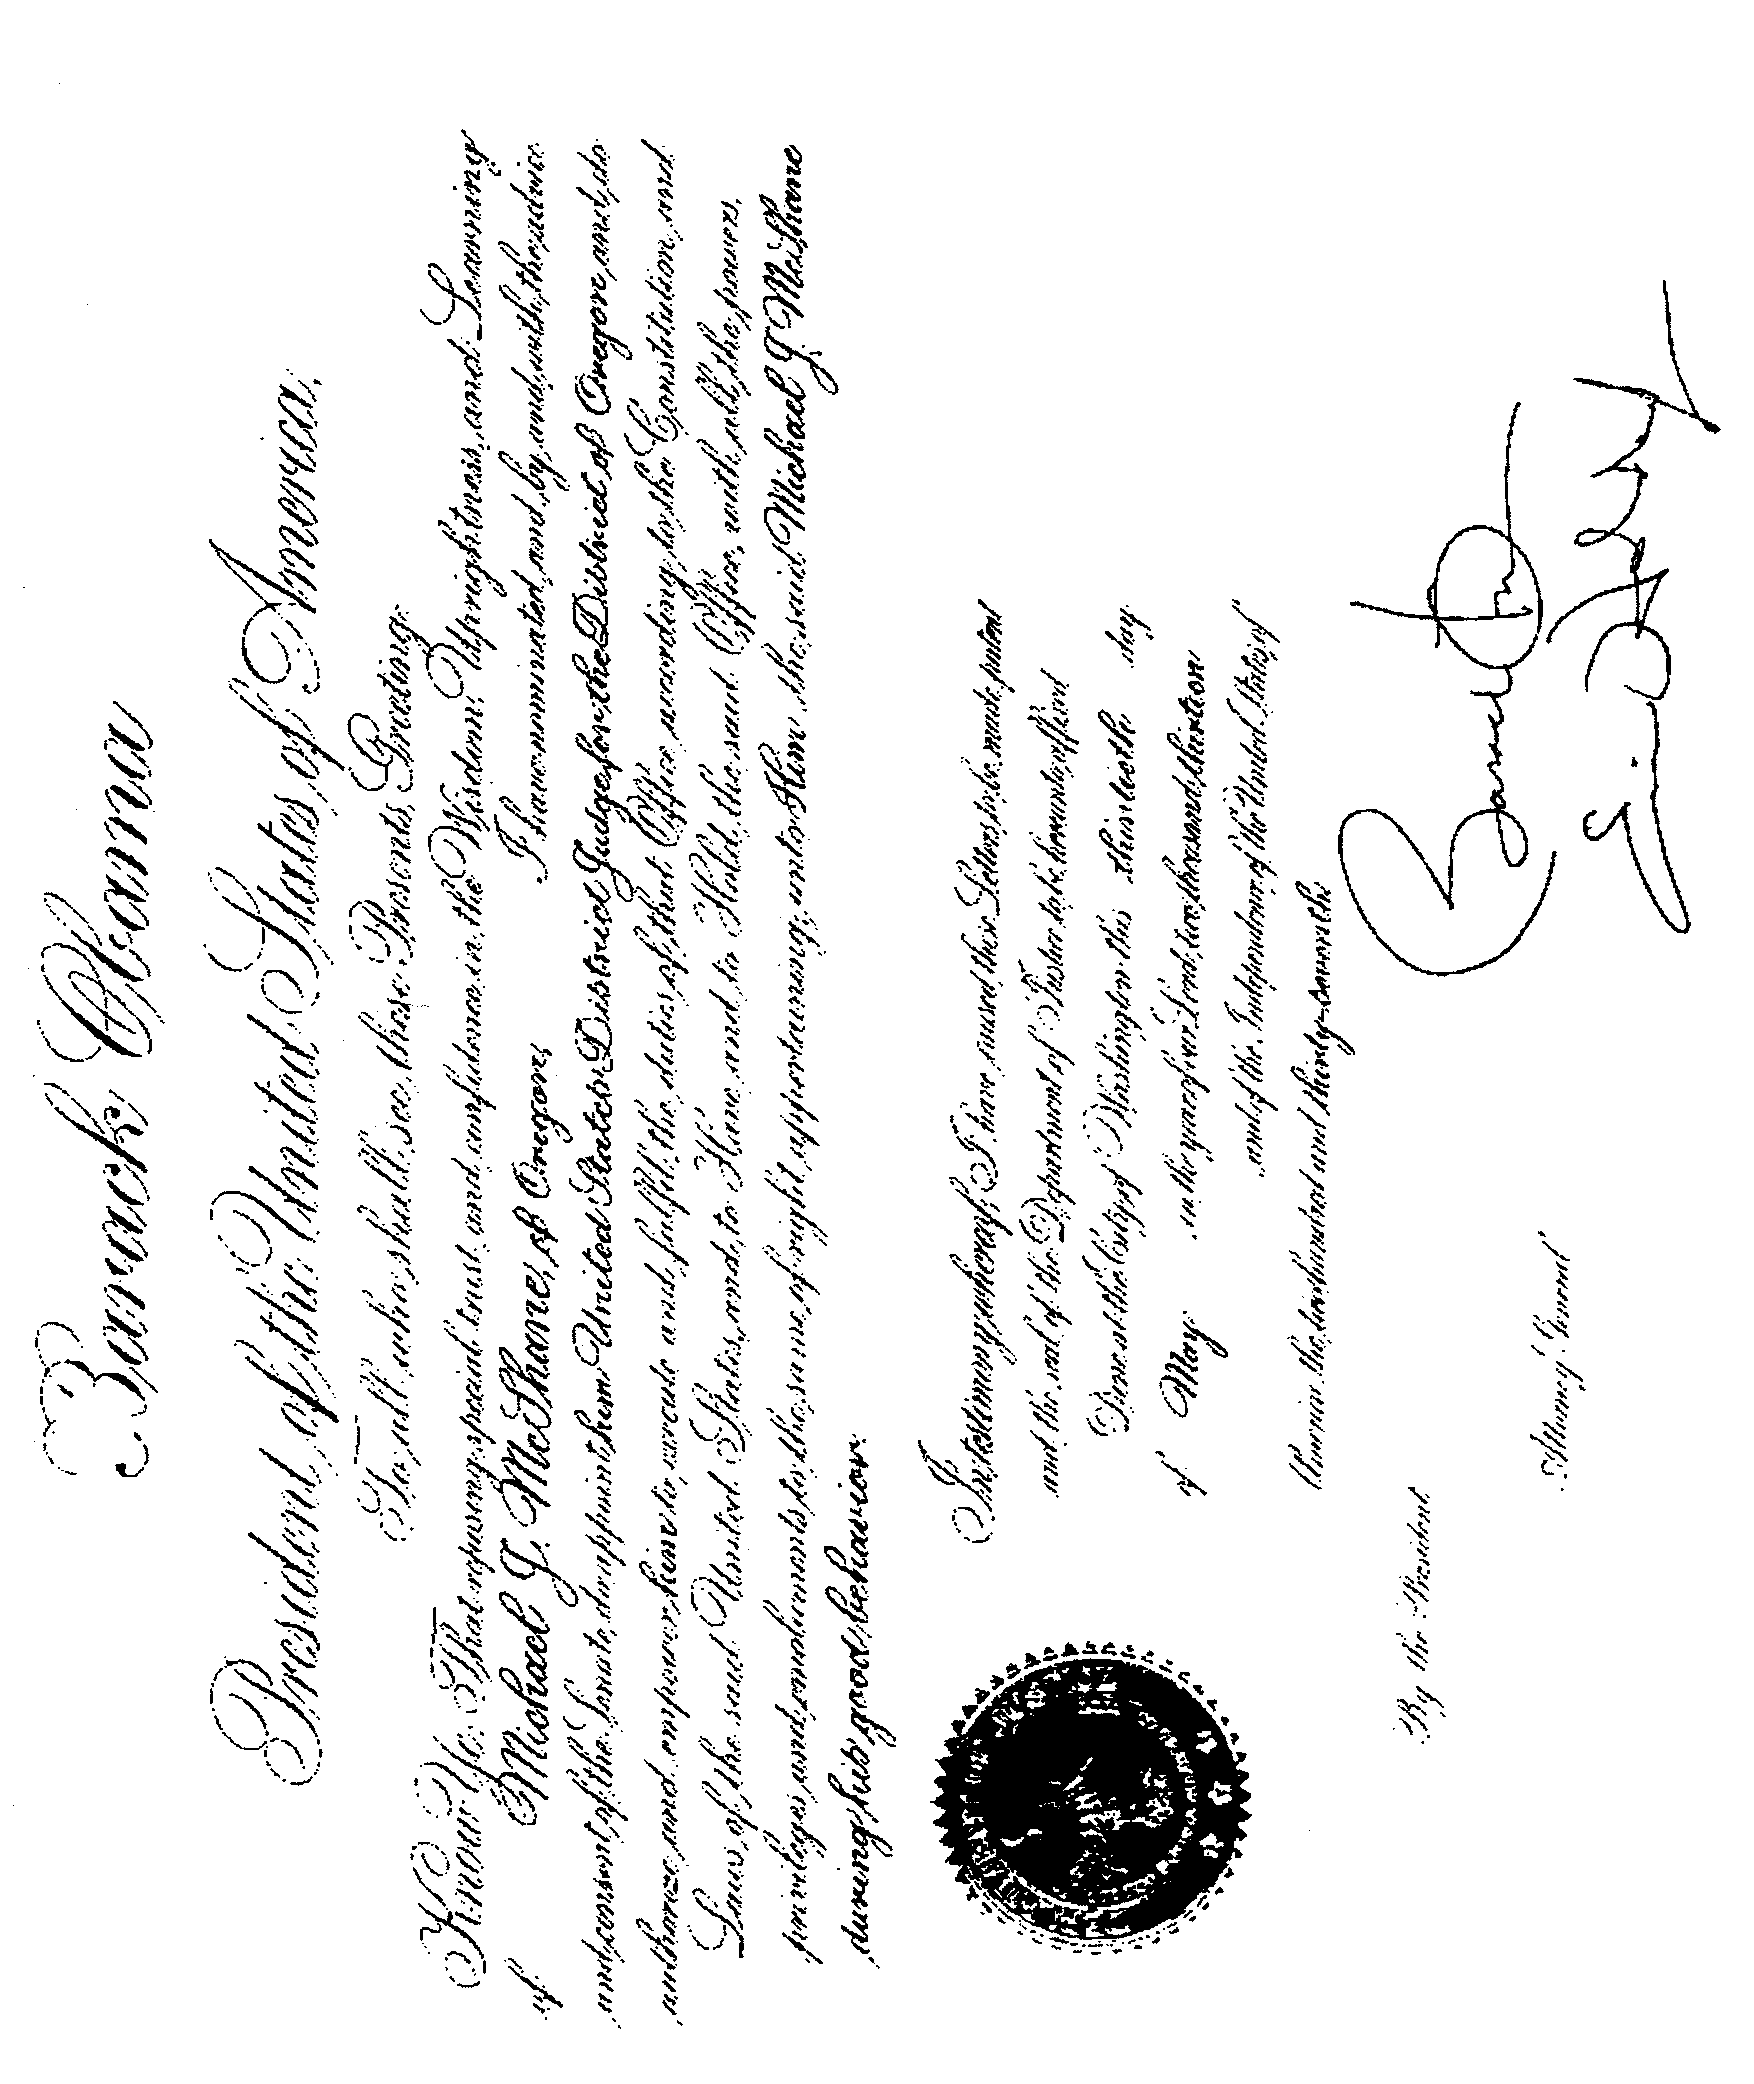 Barack Obama
President of the United States of America,
To all who shall see these Presents, Greeting:
Know Ye; That reposing special trust and confidence in the Wisdom, Uprightness, and Learning
of Michael J. McShane, of Oregon, I have nominated, and, by and with the advice
and consent of the Senate, do appoint him United States District Judge for the District of Oregon, and do
authorize and empower him to execute and fulfil the duties of that Office according to the Constitution and
Laws of the said United States, and to Have and to Hold the said Office, with all the powers,
privileges, and emoluments to the same of right appertaining, unto Him, the said Michael J. McShane
during his good behavior.
In testimony whereof, I have caused these Letters to be made patent
and the seal of the Department of Justice to be hereunto affixed
Done at the City of Washington this thirtieth day
of May in the year of our Lord, two thousand thirteen
and of the Independence of the United States of
America the two hundred and thirty-seventh.
By the President
Attorney General